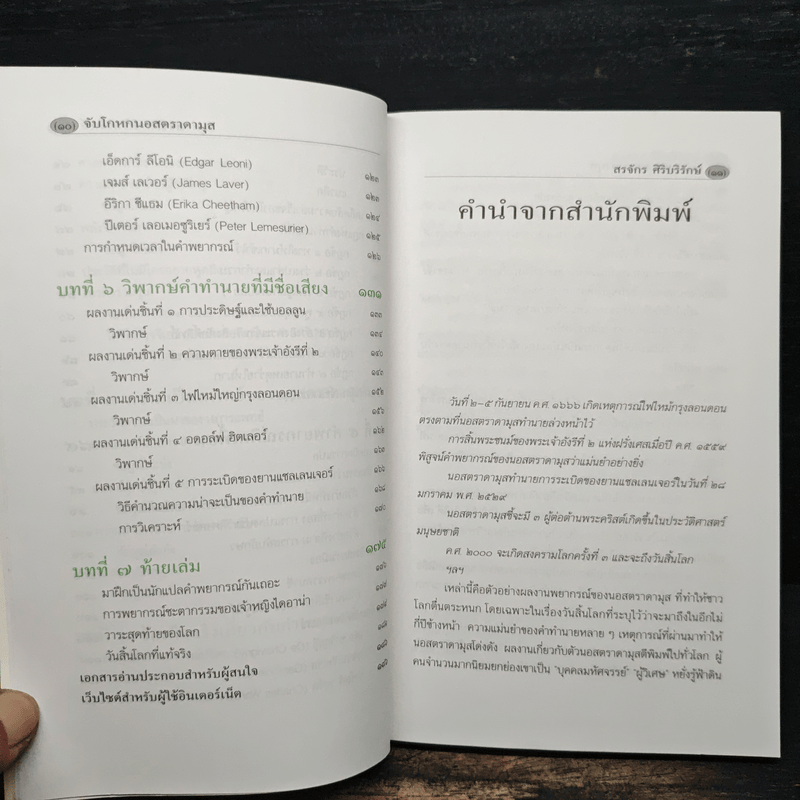 (๑๐) จับโกหกนอสตราดามุส
เอ็ดการ์ ลีโอนิ (Edgar Leoni) ๑๒๓
เจมส์ เลเวอร์ (James Laver) ๑๒๓
อีริกา ชีแธม (Erika Cheetham) ๑๒๔
ปีเตอร์ เลอเมอซูริเยร์ (Peter Lemesurier) ๑๒๕
การกำหนดเวลาในคำพยากรณ์ ๑๒๖
บทที่ ๖ วิพากษ์คำทำนายที่มีชื่อเสียง ๑๓๑
ผลงานเด่นชิ้นที่ ๑ การประดิษฐ์และใช้บอลลูน
วิพากษ์ ๑๓๔
ผลงานเด่นชิ้นที่ ๒ ความตายของพระเจ้าอังรีที่ ๒ ๑๔๐
วิพากษ์ ๑๔๐
ผลงานเด่นชิ้นที่ ๓ ไฟไหม้ใหญ่กรุงลอนดอน ๑๕๒
วิพากษ์
ผลงานเด่นชิ้นที่ ๔ อดอล์ฟ ฮิตเลอร์
วิพากษ์
ผลงานเด่นชิ้นที่ ๕ การระเบิดของยานแชลเลนเจอร์
วิธีคำนวณความน่าจะเป็นของคำทำนาย
การวิเคราะห์
บทที่ ๗ ท้ายเล่ม ๑๗๕
มาฝึกเป็นนักแปลคำพยากรณ์กันเถอะ
การพยากรณ์ชะตากรรมของเจ้าหญิงไดอาน่า
วาระสุดท้ายของโลก
วันสิ้นโลกที่แท้จริง
เอกสารอ่านประกอบสำหรับผู้สนใจ
เว็บไซต์สำหรับผู้ใช้อินเตอร์เน็ต
สรจักร ศิริบริรักษ์ (๑๑)
คำนำจากสำนักพิมพ์
วันที่ ๒-๕ กันยายน ค.ศ. ๑๖๖๖ เกิดเหตุการณ์ไฟไหม้กรุงลอนดอน
ตรงตามที่นอสตราดามุสทำนายล่วงหน้าไว้
การสิ้นพระชนม์ของพระเจ้าอังรีที่ ๒ แห่งฝรั่งเศสเมื่อปี ค.ศ. ๑๕๕๙
พิสูจน์คำพยากรณ์ของนอสตราดามุสว่าแม่นยำอย่างยิ่ง
นอสตราดามุสทำนายการระเบิดของยานแชลเลนเจอร์ในวันที่ ๒๘
มกราคม พ.ศ. ๒๕๒๙
นอสตราดามุสชี้จะมี ๓ ผู้ต่อต้านพระคริสต์เกิดขึ้นในประวัติศาสตร์
มนุษยชาติ
ค.ศ. ๒๐๐๐ จะเกิดสงครามโลกครั้งที่ ๓ และจะถึงวันสิ้นโลก
ฯลฯ
เหล่านี้คือตัวอย่างผลงานพยากรณ์ของนอสตราดามุส ที่ทำให้ชาว
โลกตื่นตระหนก โดยเฉพาะในเรื่องวันสิ้นโลกที่ระบุไว้ว่าจะมาถึงในอีกไม่
กี่ปีข้างหน้า ความแม่นยำของคำทำนายหลาย ๆ เหตุการณ์ที่ผ่านมาทำให้
นอสตราดามุสโด่งดัง ผลงานเกี่ยวกับตัวนอสตราดามุสตีพิมพ์ไปทั่วโลก ผู้
คนจำนวนมากนิยมยกย่องเขาเป็น "บุคคลมหัศจรรย์" "ผู้วิเศษ" หยั่งรู้ฟ้าดิน